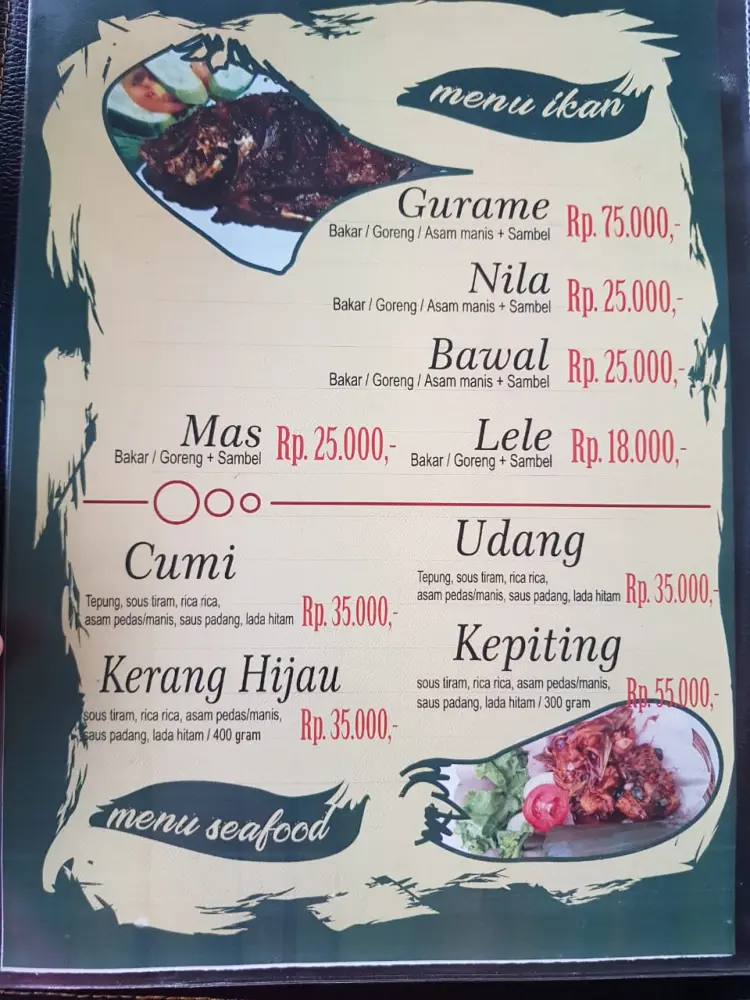 menu ikan
Gurame
Bakar / Goreng / Asam manis + Sambel
Rp. 75.000,-
Nila
Bakar / Goreng / Asam manis + Sambel
Rp. 25.000,-
Bawal
Bakar / Goreng / Asam manis + Sambel
Rp. 25.000,-
Mas
Bakar / Goreng + Sambel
Rp. 25.000,-
Lele
Bakar / Goreng + Sambel
Rp. 18.000,-
Cumi
Tepung, sous tiram, rica rica,
asam pedas/manis, saus padang, lada hitam
Rp. 35.000,-
Udang
Tepung, sous tiram, rica rica,
asam pedas/manis, saus padang, lada hitam
Rp. 35.000,-
Kerang Hijau
sous tiram, rica rica, asam pedas/manis,
saus padang, lada hitam / 400 gram
Rp. 35.000,-
Kepiting
sous tiram, rica rica, asam pedas/manis,
saus padang, lada hitam / 300 gram
Rp. 55.000,-
menu seafood